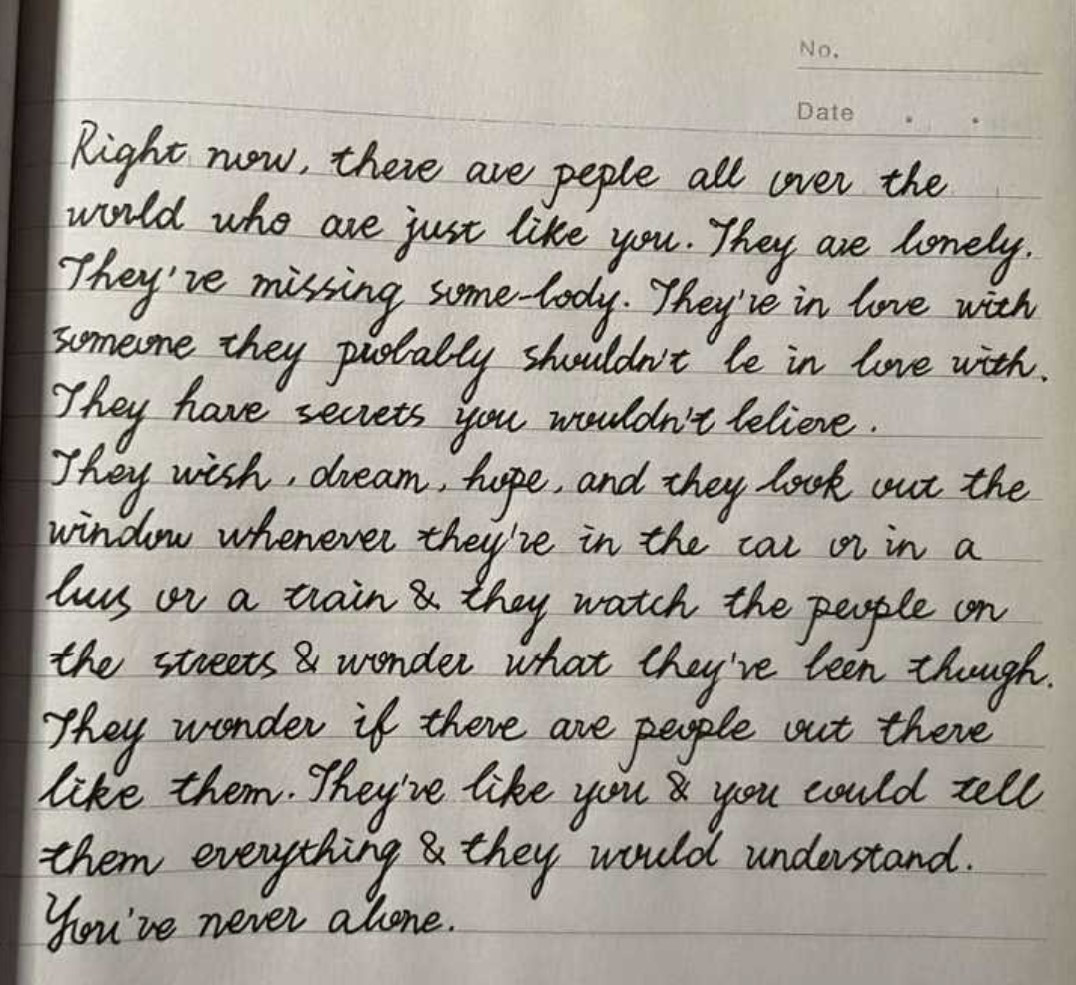 No.
Date . .
Right now, there are peple all over the
world who are just like you. They are lonely.
They're missing some-body. They're in love with
someone they probably shouldn't be in love with.
They have secrets you wouldn't believe.
They wish, dream, hope, and they look out the
window whenever they're in the car or in a
bus or a train & they watch the people on
the streets & wonder what they've been though.
They wonder if there are people out there
like them. They're like you & you could tell
them everything & they would understand.
You're never alone.